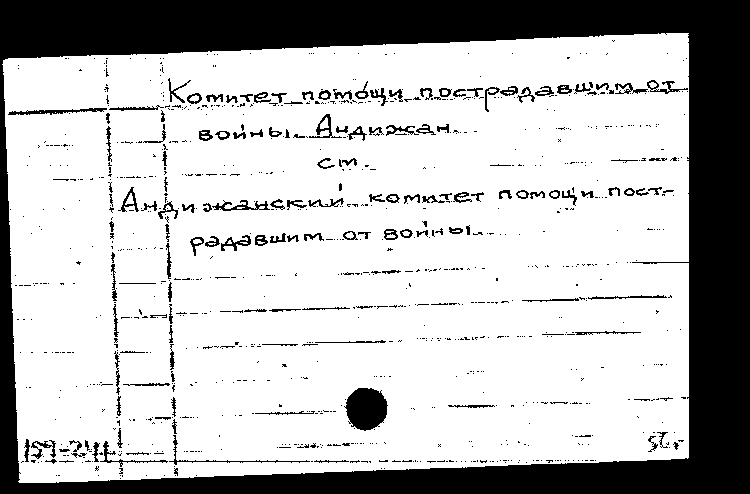 Комитет помощи пострадавшим от
войны. Андижан.
ст.
Андижанский комитет помощи пост-
радавшим от войны.
159-241